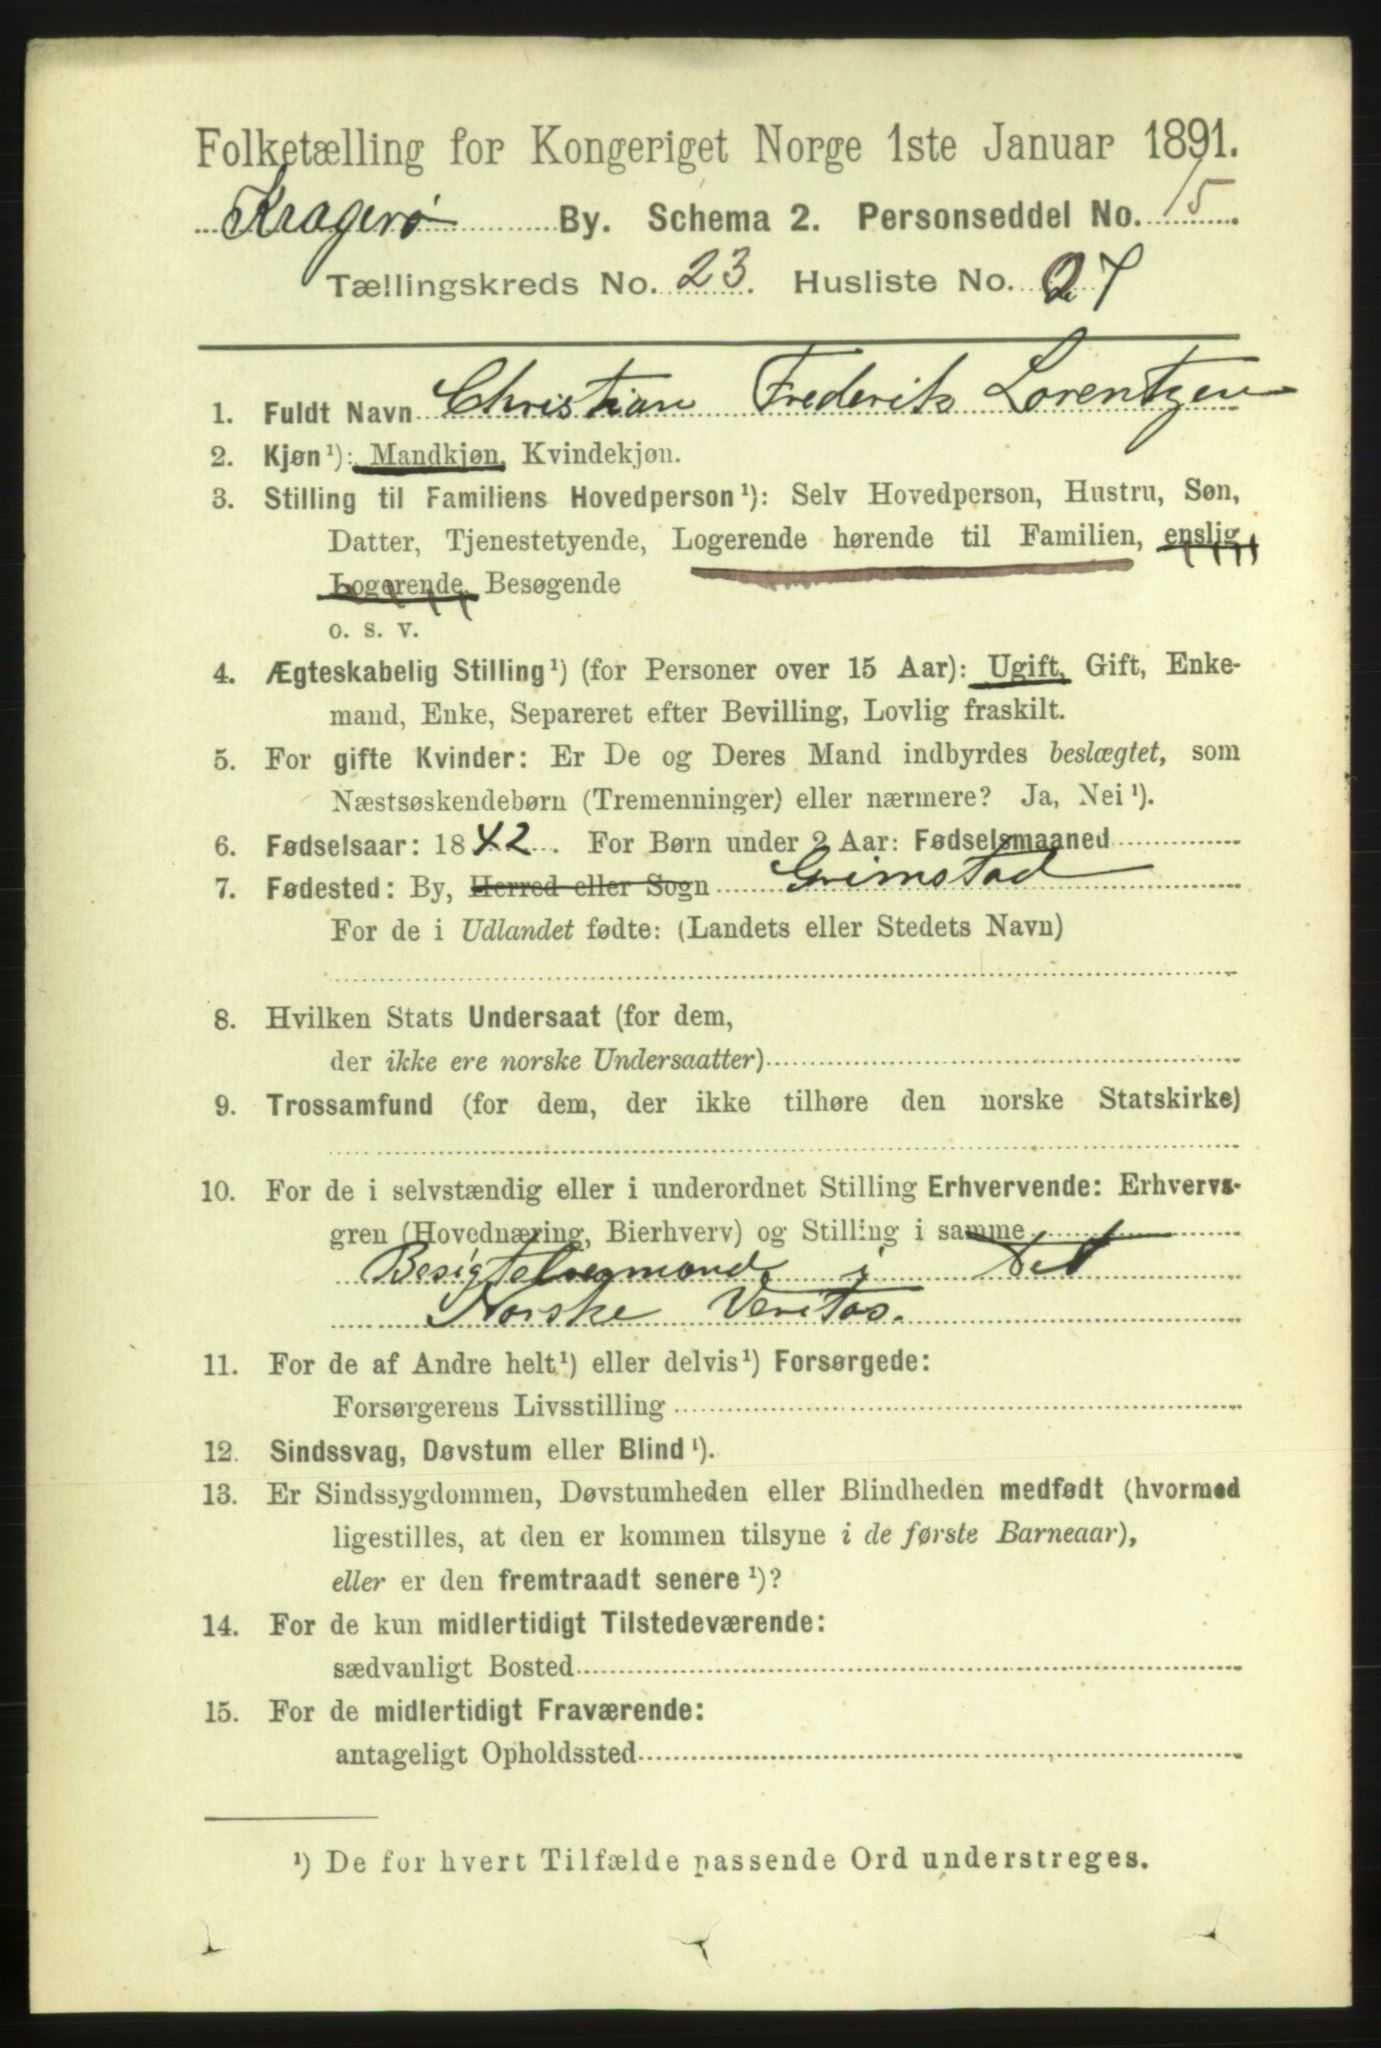 Folketælling for Kongeriget Norge 1ste Januar 1891.
Kragerø By. Schema 2. Personseddel No. 15
Tællingskreds No. 23. Husliste No. 27
1. Fuldt Navn Christian Frederik Lorentzen
2. Kjøn¹): Mandkjøn, Kvindekjøn.
3. Stilling til Familiens Hovedperson¹): Selv Hovedperson, Hustru, Søn,
Datter, Tjenestetyende, Logerende hørende til Familien, enslig
Logerende, Besøgende
o. s. v.
4. Ægteskabelig Stilling¹) (for Personer over 15 Aar): Ugift, Gift, Enke-
mand, Enke, Separeret efter Bevilling, Lovlig fraskilt.
5. For gifte Kvinder: Er De og Deres Mand indbyrdes beslægtet, som
Næstsøskendebørn (Tremenninger) eller nærmere? Ja, Nei¹).
6. Fødselsaar: 1842. For Børn under 2 Aar: Fødselsmaaned
7. Fødested: By, Herred eller Sogn Grimstad
For de i Udlandet fødte: (Landets eller Stedets Navn)
8. Hvilken Stats Undersaat (for dem,
der ikke ere norske Undersaatter)
9. Trossamfund (for dem, der ikke tilhøre den norske Statskirke)
10. For de i selvstændig eller i underordnet Stilling Erhvervende: Erhvervs-
gren (Hovednæring, Bierhverv) og Stilling i samme
Besigtelsesmand i Det
Norske Veritas.
11. For de af Andre helt¹) eller delvis¹) Forsørgede:
Forsørgerens Livsstilling
12. Sindssvag, Døvstum eller Blind¹).
13. Er Sindssygdommen, Døvstumheden eller Blindheden medfødt (hvormed
ligestilles, at den er kommen tilsyne i de første Barneaar),
eller er den fremtraadt senere¹)?
14. For de kun midlertidigt Tilstedeværende:
sædvanligt Bosted
15. For de midlertidigt Fraværende:
antageligt Opholdssted
¹) De for hvert Tilfælde passende Ord understreges.